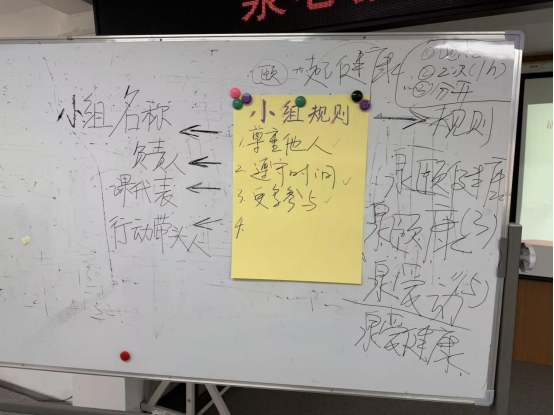 小组名称
负责人
课代表
行动带头人
小组规则
1. 尊重他人 ✓
2. 遵守时间 ✓
3. 更多参与 ✓
4.
颐 一起健康
② 2次(1h)
③ 分开
规则
泉颐健康
泉颐康(3)
泉爱动(5)
泉爱健康